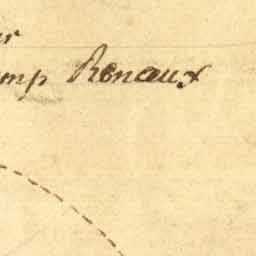 ur
mp Renaux